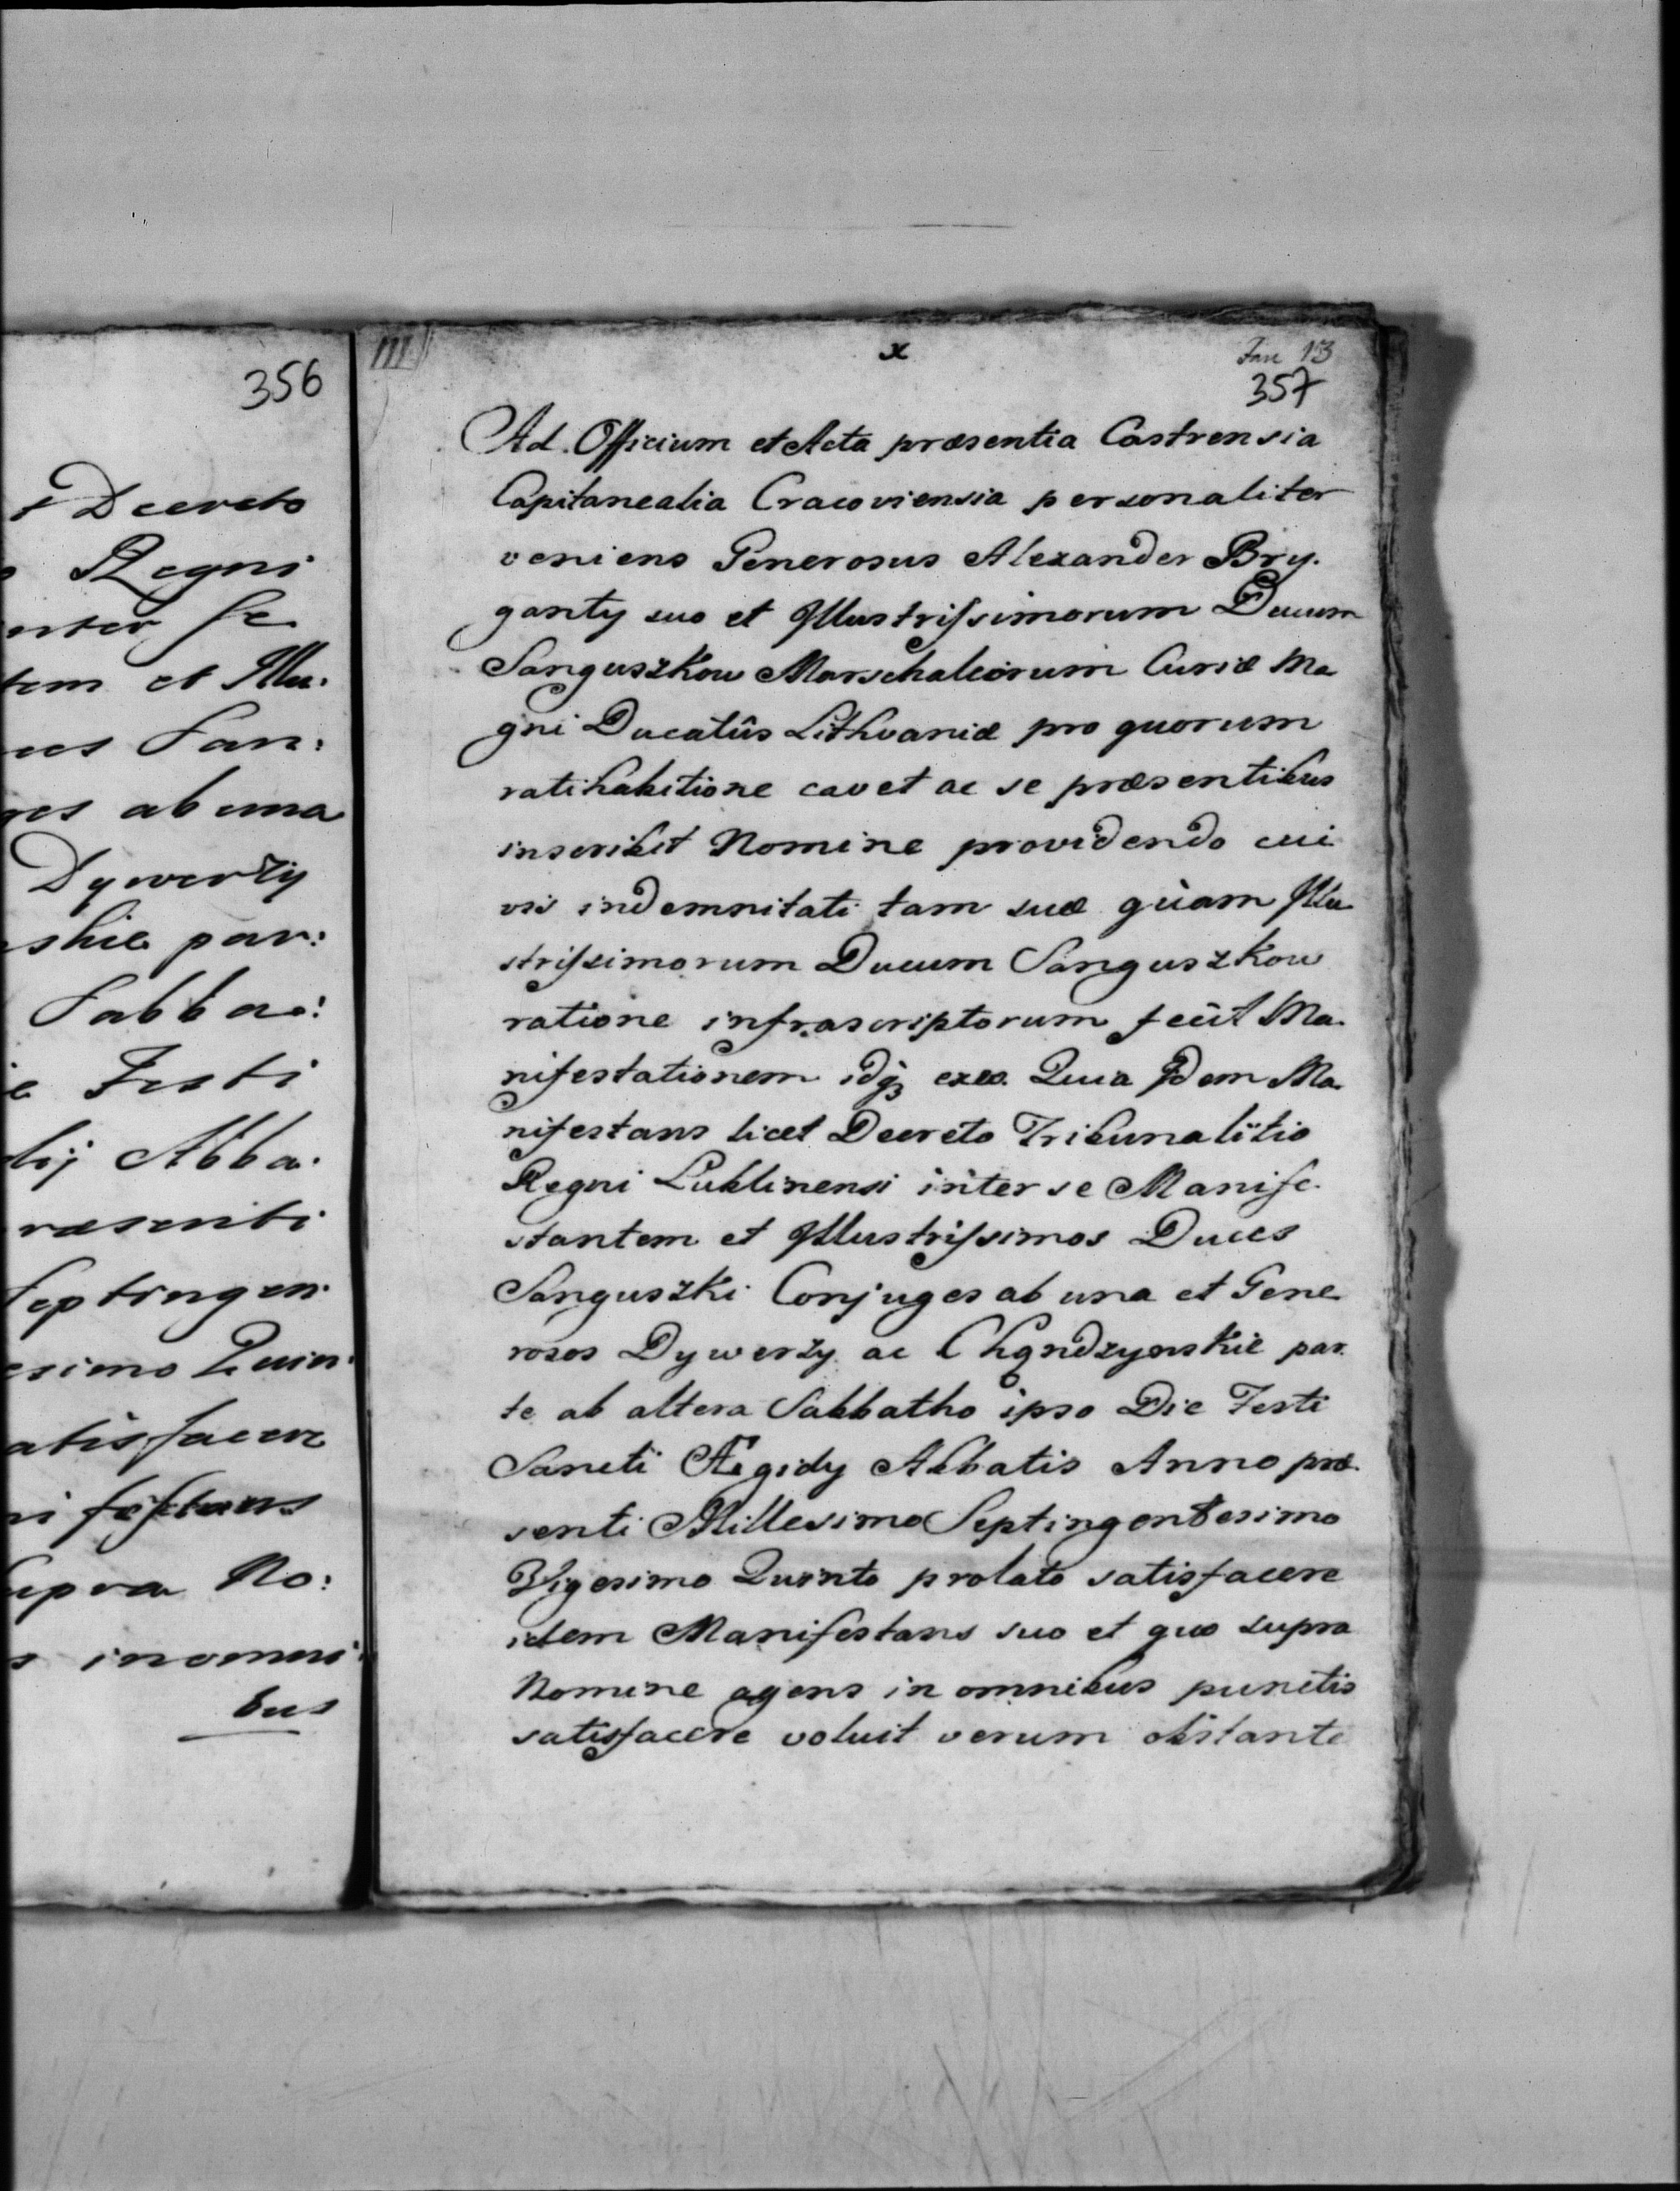 356
Decreto
Regni
se
tem et Illu:
San:
ab una
Dywerży
par:
Sabba:
Festi
Abba.
Septingen:
esimo Quin:
atisfacere
supra No:
in omni:
bus
III
x
Fas 13
357
Ad Officium et Acta præsentia Castrensia
Capitanealia Cracoviensia personaliter
veniens Generosus Alexander Bry.
ganty suo et Illustrissimorum Ducum
Sanguszkow Marschalcorum Curiæ Ma
gni Ducatûs Lithvaniæ pro quorum
ratihabitione cavet ac se præsentibus
inscribit Nomine providendo cui
vis indemnitati tam suæ quam Illu
strissimorum Ducum Sanguszkow
ratione infrascriptorum fecit Ma.
nifestationem idq exeo. Quia Idem Ma.
nifestans licet Decreto Tribunalitio
Regni Lublinensi inter se Manife.
stantem et Illustrissimos Duces
Sanguszki Conjuges ab una et Gene
rosos Dywerży ac Chądzyńskie par.
te ab altera Sabbatho ipso Die Festi
Sancti Ægidy Abbatis Anno præ.
senti Millesimo Septingentesimo
Vigesimo Quinto prolato satisfacere
idem Manifestans suo et quo supra
Nomine agens in omnibus punctis
satisfacere voluit verum obstante